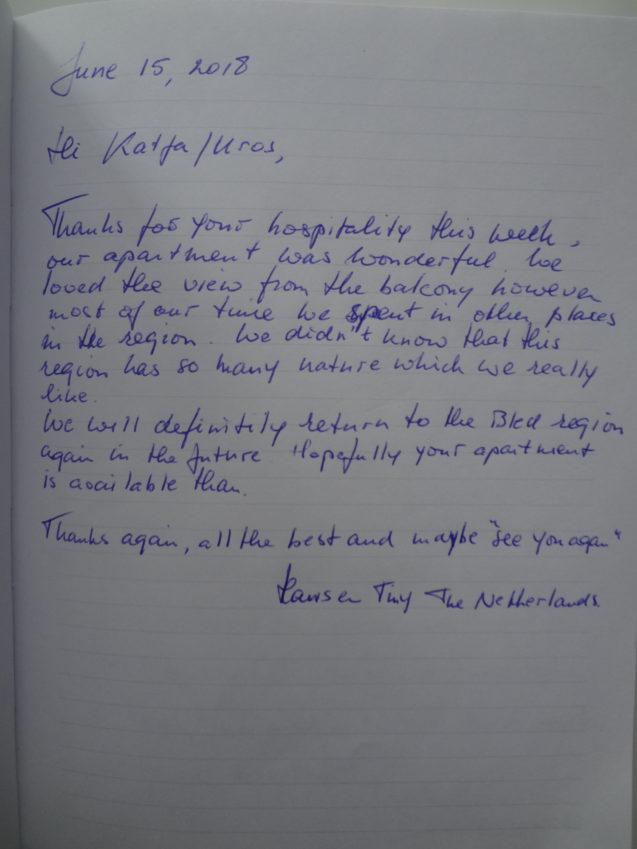 June 15, 2018
Hi Katja/Uros,
Thanks for your hospitality this week,
our apartment was wonderful. We
loved the view from the balcony however
most of our time we spent in other places
in the region. We didn't know that this
region has so many nature which we really
like.
We will definitily return to the Bled region
again in the future. Hopefully your apartment
is available than.
Thanks again, all the best and maybe "see you again"
Tiny The Netherlands.